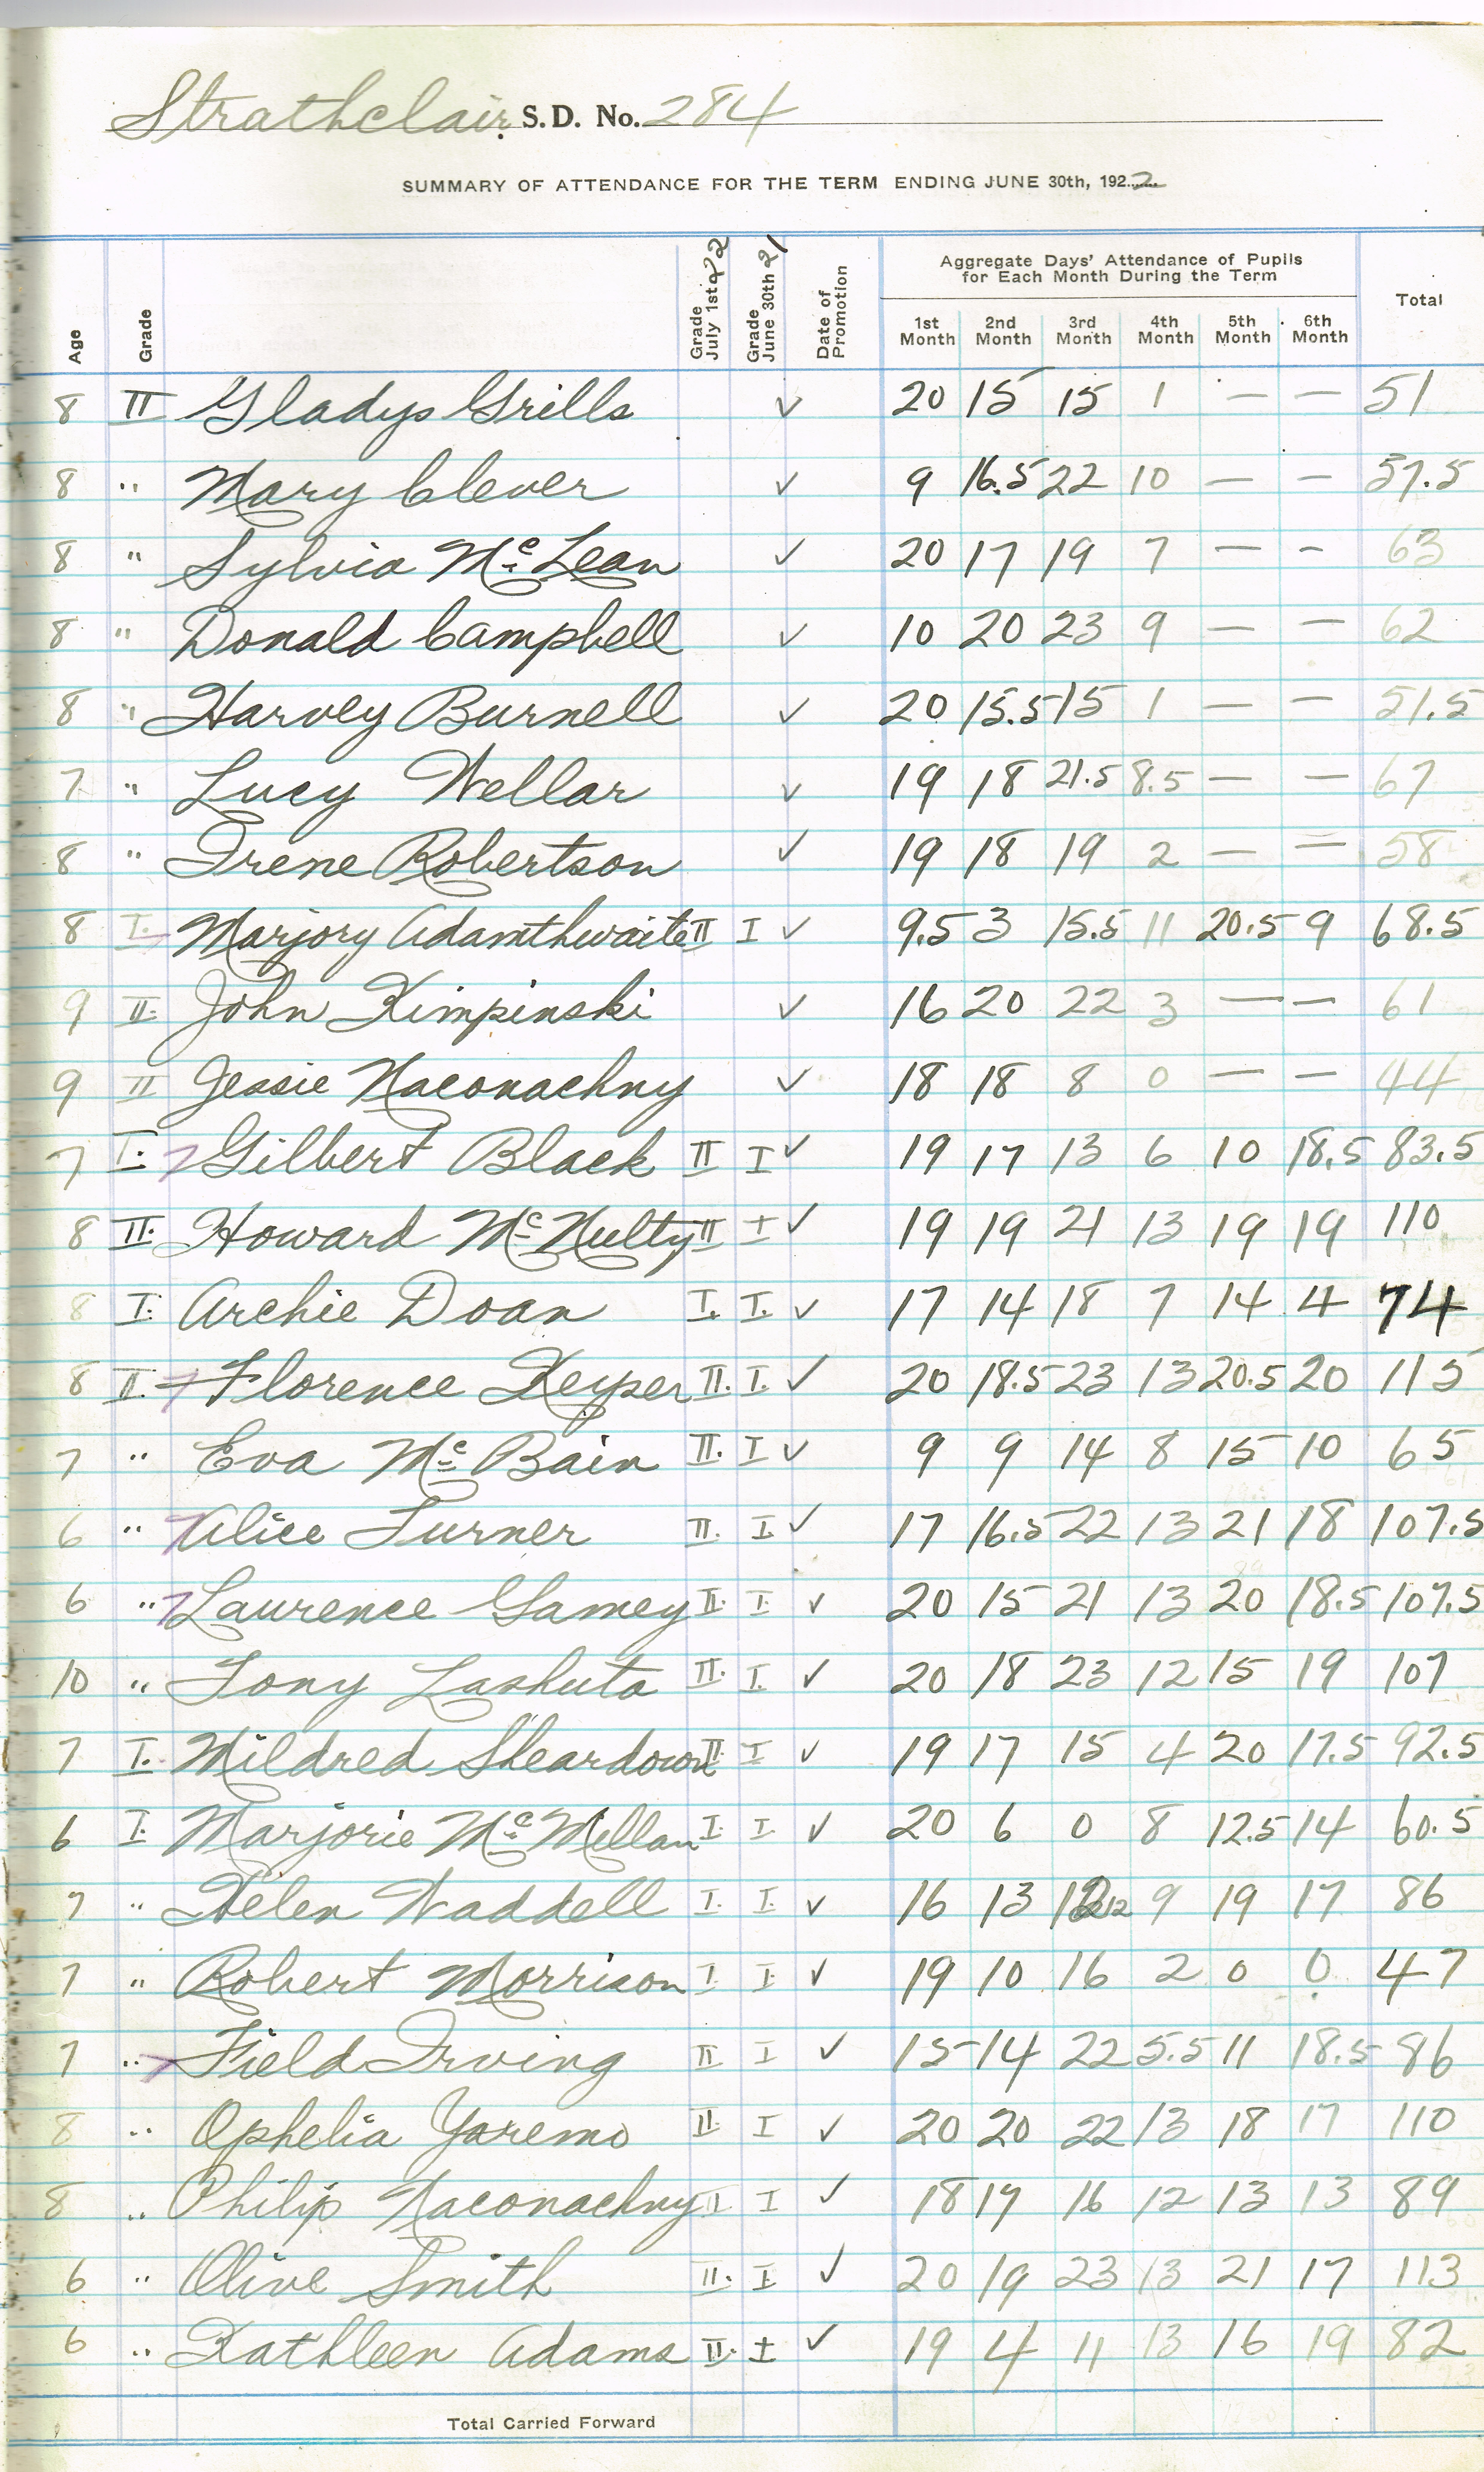 Strathclair S.D. No. 284
SUMMARY OF ATTENDANCE FOR THE TERM ENDING JUNE 30th, 1922
Age Grade Grade July 1st 22 Grade June 30th 21 Date of Promotion Aggregate Days' Attendance of Pupils for Each Month During the Term Total
1st Month 2nd Month 3rd Month 4th Month 5th Month 6th Month
8 II Gladys Grills ✓ 20 15 15 1 — — 51
8 " Mary Clever ✓ 9 16.5 22 10 — — 57.5
8 " Sylvia Mc Lean ✓ 20 17 19 7 — — 63
8 " Donald Campbell ✓ 10 20 23 9 — — 62
8 " Harvey Burnell ✓ 20 15.5 15 1 — — 51.5
7 " Lucy Wellar ✓ 19 18 21.5 8.5 — — 67
8 " Irene Robertson ✓ 19 18 19 2 — — 58
8 I. Marjory Adamthwaite II I ✓ 9.5 3 15.5 11 20.5 9 68.5
9 II John Kimpinski ✓ 16 20 22 3 — — 61
9 II Jessie Naconachny ✓ 18 18 8 0 — — 44
7 I. Gilbert Black II I ✓ 19 17 13 6 10 18.5 83.5
8 II. Howard Mc Nulty II I ✓ 19 19 21 13 19 19 110
8 I. Archie Doan I. I. ✓ 17 14 18 7 14 4 74
8 II. Florence Keyser II. I. ✓ 20 18.5 23 13 20.5 20 115
7 " Eva Mc Bain II. I ✓ 9 9 14 8 15 10 65
6 " Alice Turner II. I ✓ 17 16.5 22 13 21 18 107.5
6 " Laurence Gamey II. I. ✓ 20 15 21 13 20 18.5 107.5
10 " Tony Lashuta II. I. ✓ 20 18 23 12 15 19 107
7 I. Mildred Sheardown II I ✓ 19 17 15 4 20 17.5 92.5
6 I. Marjorie Mc Millan I. I. ✓ 20 6 0 8 12.5 14 60.5
7 " Helen Waddell I. I. ✓ 16 13 12 9 19 17 86
7 " Robert Morrison I I ✓ 19 10 16 2 0 0 47
7 " Field Irving II I ✓ 15 14 22 5.5 11 18.5 86
8 " Ophelia Yaremo II. I ✓ 20 20 22 13 18 17 110
8 " Philip Naconachny I ✓ 18 17 16 12 13 13 89
6 " Olive Smith II. I ✓ 20 19 23 13 21 17 113
6 " Kathleen Adams II. I ✓ 19 4 11 13 16 19 82
Total Carried Forward